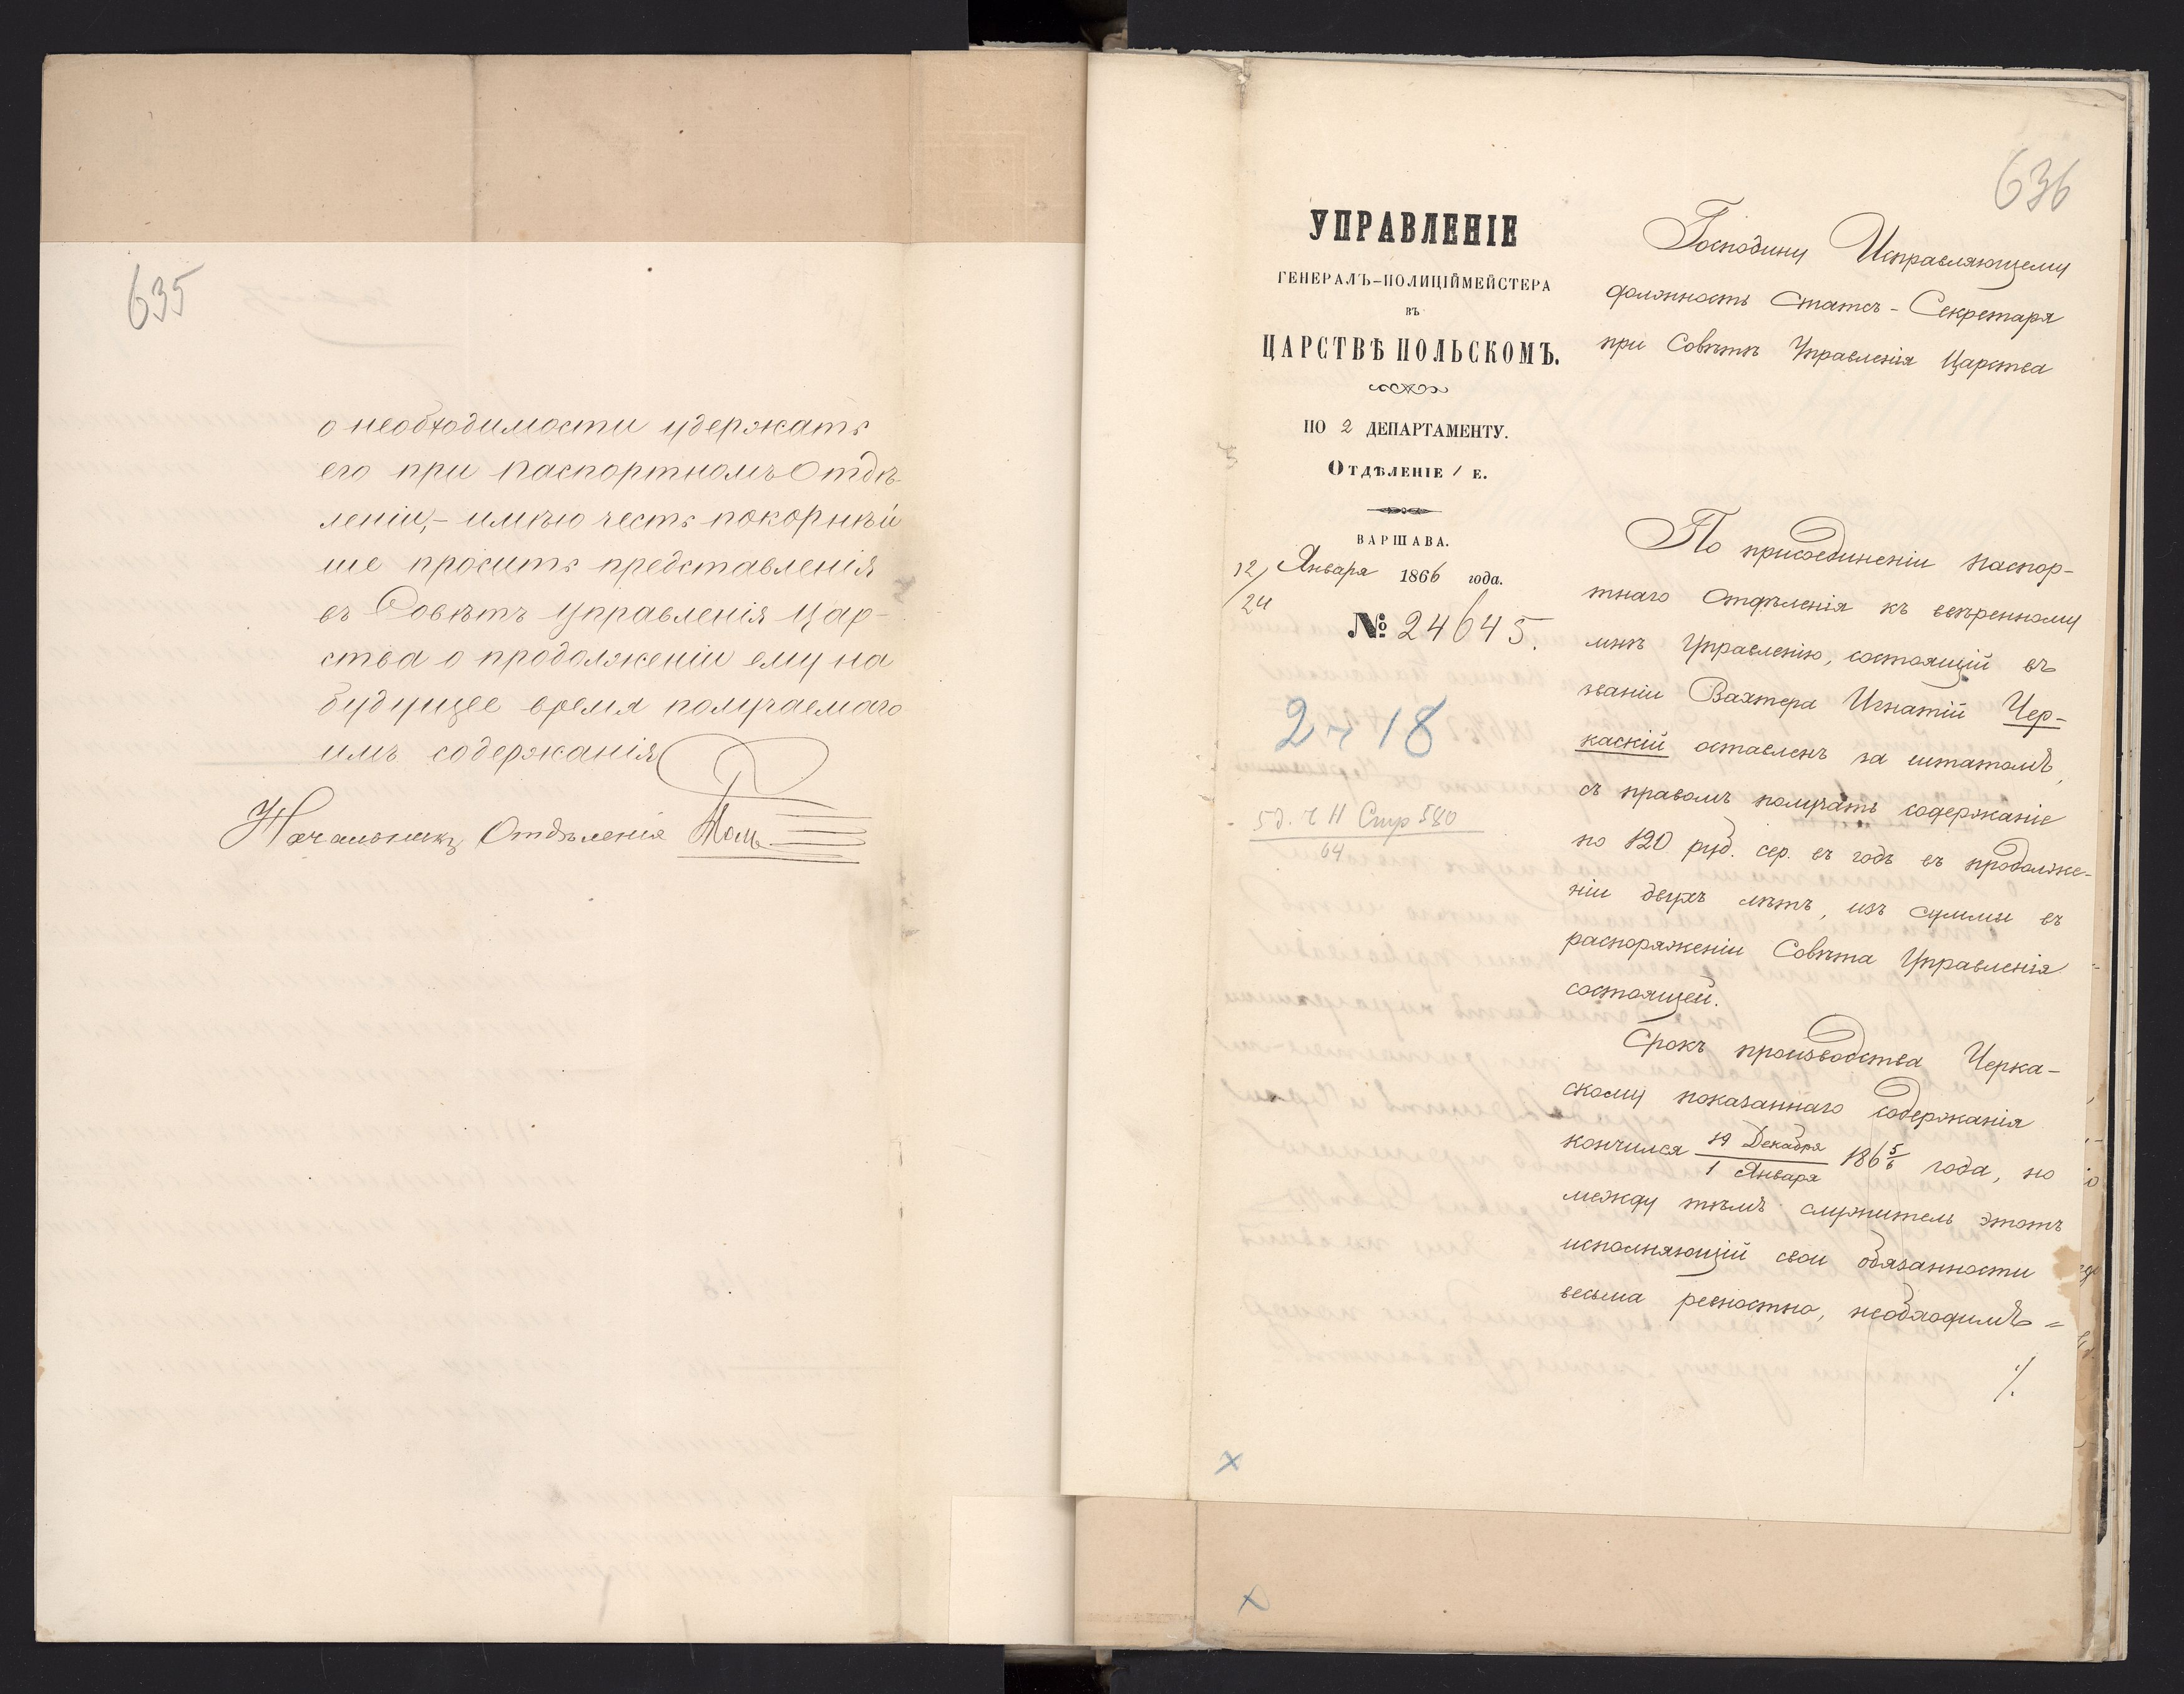 635
о необходимости удержать
его при Паспортномъ Отдѣ-
леніи, – имѣю честь покорнѣй
ше просить представленія
въ Совѣтъ Управленія Цар-
ства о продолженіи ему на
будущее время получаемаго
имъ содержанія
Начальникъ Отдѣленія
636
УПРАВЛЕНІЕ
ГЕНЕРАЛЪ-ПОЛИЦІЙМЕЙСТЕРА
ВЪ
ЦАРСТВѢ ПОЛЬСКОМЪ.
ПО 2 ДЕПАРТАМЕНТУ.
ОТДѢЛЕНІЕ 1 Е.
ВАРШАВА.
12/24 Января 1866 года.
№ 24645.
2 ч 18
5 д. ч II Стр 580
64
Господину Исправляющему
должность Статсъ-Секретаря
при Совѣтѣ Управленія Царства
По присоединеніи паспор-
тнаго Отдѣленія къ ввѣренному
мнѣ Управленію, состоящій въ
званіи Вахтера Игнатій Чер-
каскій оставленъ за штатомъ,
съ правомъ получать содержаніе
по 120 руб. сер. въ годъ въ продолже-
ніи двухъ лѣтъ, изъ суммы въ
распоряженіи Совѣта Управленія
состоящей.
Срокъ производства Черка-
скому показаннаго содержанія
кончился 19 Декабря / 1 Января 186 5/6 года, но
между тѣмъ служитель этотъ
исполняющій свои обязанности
весьма ревностно, необходимъ =
./.